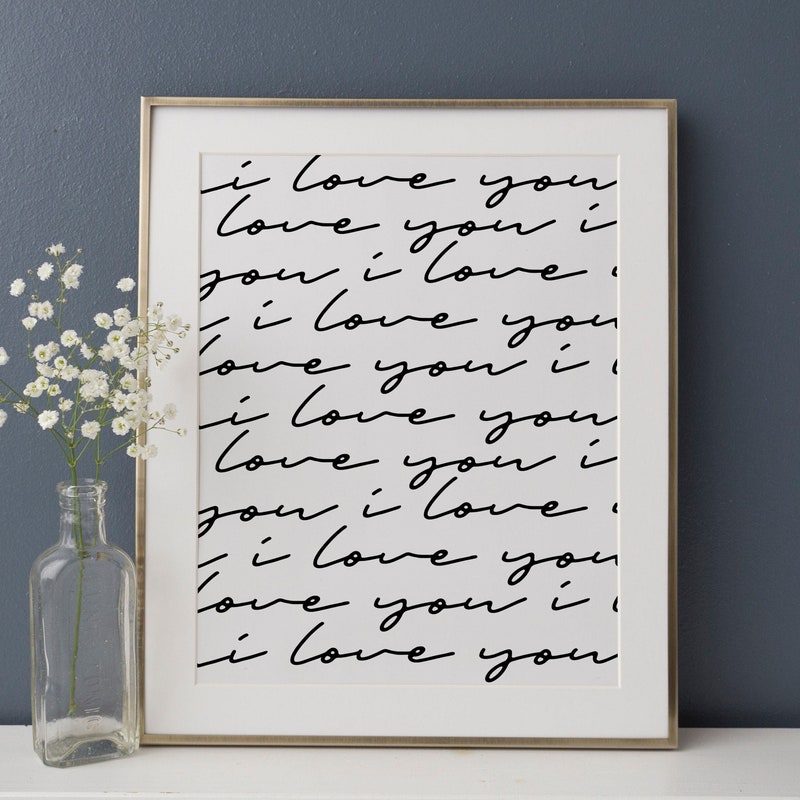 i love you
love you i
you i love
i love you
love you i
i love you
love you i
you i love
i love you
love you i
i love you